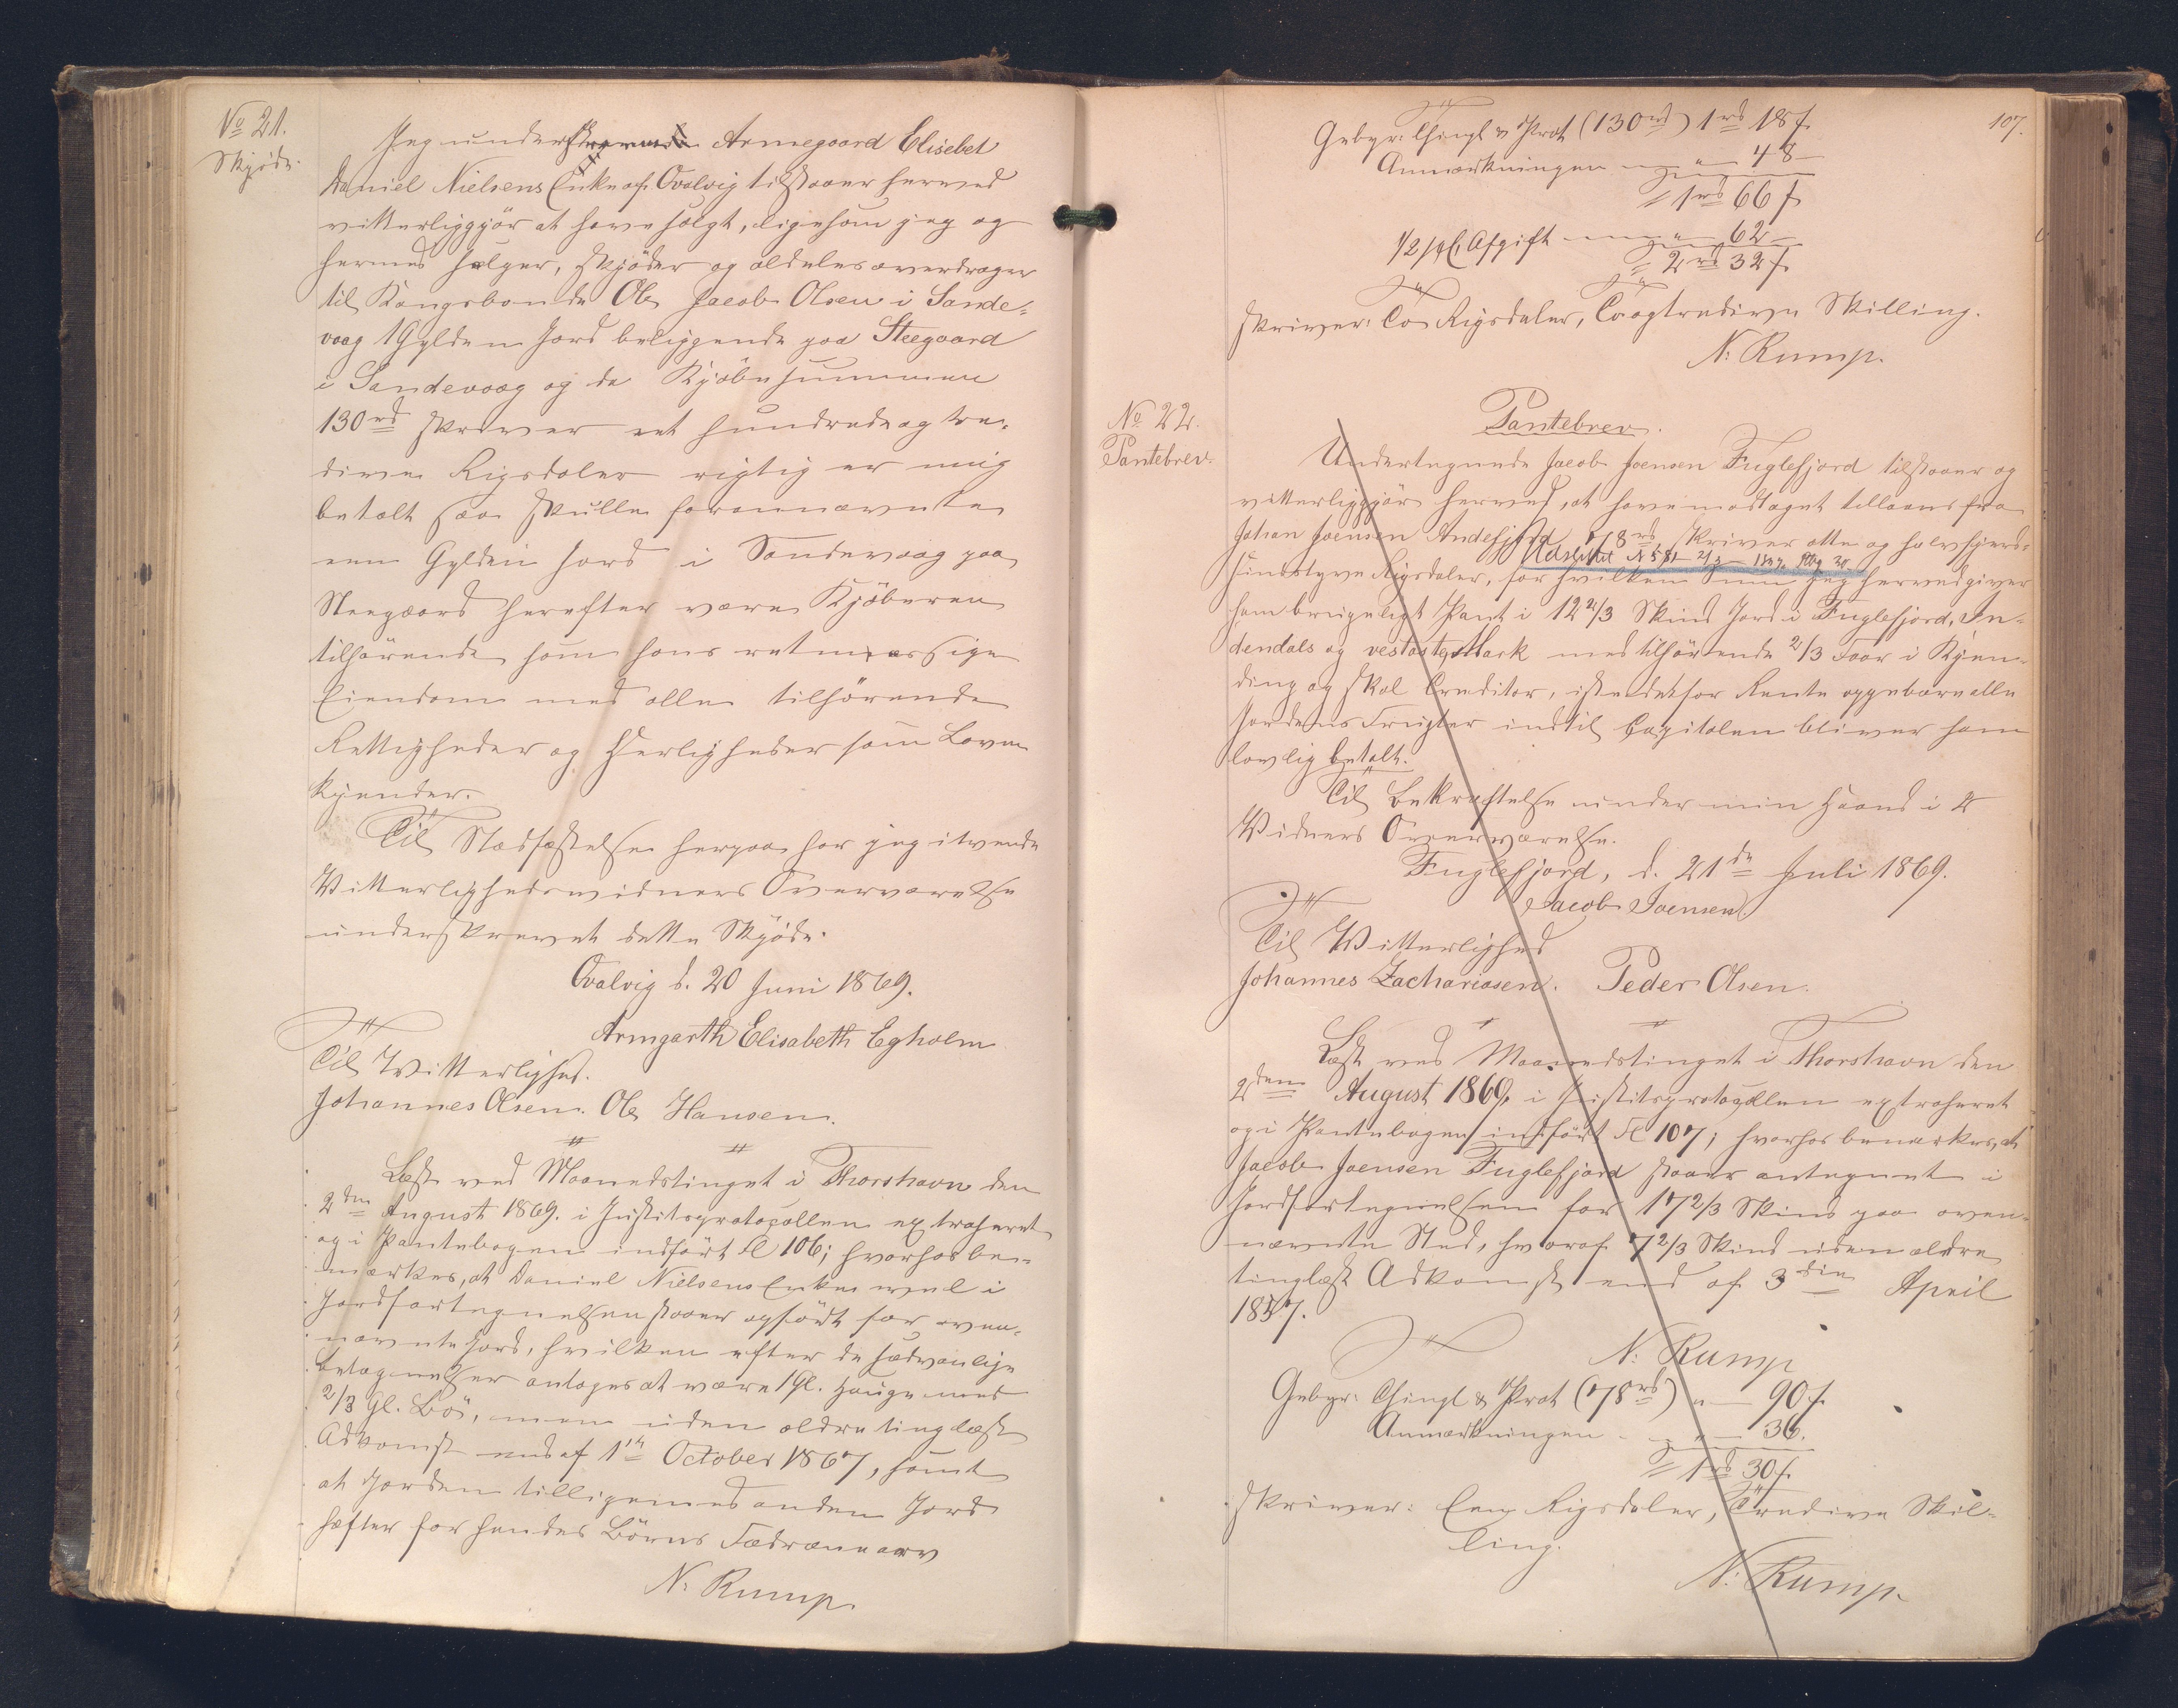 No 21.
Skjöde.
Jeg underskrevne Armegaard Elisebet
Daniel Nielsens Enke af Qvalvig tilstaaer herved
vitterliggjör at have solgt, ligesom jeg og
hermed sælger, skjöder og aldeles overdrager
til Kongsbonde Ole Jacob Olsen i Sande-
vaag 1 Gylden Jord beliggende paa Steegaard
i Sandevaag og da Kjöbesummen
130 rd skriver et hundrede og tre-
dive Rigsdaler rigtig er mig
betalt saa skulle forannævnte
een Gylden Jord i Sandevaag paa
Steegaard herefter være Kjöberen
tilhörende som hans retmæssige
Eiendom med alle tilhörende
Rettigheder og Herligheder som Loven
kjender.
Til Stadfæstelse herpaa har jeg i tvende
Vitterlighedsvidners Overværelse
underskrevet dette Skjöde.
Qvalvig d. 20 Juni 1869.
Armgarth Elisabeth Egholm
Til Vitterlighed.
Johannes Olsen. Ole Hansen.
Læst ved Maanedstinget i Thorshavn den
2den August 1869. i Justitsprotocollen extraheret
og i Pantebogen indfört Fol 106; hvorhos be-
mærkes, at Daniel Nielsens Enke vel i
Jordfortegnelsen staaer opfört for oven-
nævnte Jord, hvilken efter de sædvanlige
betagnelser antages at være 1 Gl. Hauge med
2/3 Gl. Bö, men uden ældre tinglæst
Adkomst end af 1ste October 1867, samt
at Jorden tilligemed anden Jord
hæfter for hendes Börns Fædrenearv
N. Rump.
107.
Gebyr: Thingl & Prot (130 rd) 1 rd 18 s
Anmærkningen " 48
1 rd 66 s
1/2 pCt Afgift " 62
2 rd 32 s
skriver: To Rigsdaler, To og tredive Skilling.
N. Rump.
No 22.
Pantebrev.
Pantebrev.
Undertegnede Jacob Joensen Fuglefjord tilstaaer og
vitterliggjör herved, at have modtaget tillaans fra
Johan Joensen Andefjord 78 rd skriver otte og halvfjerd-
Udslettet N 581 2/3
sindstyve Rigsdaler, for hvilken Sum jeg herved giver
ham brugeligt Pant i 12 2/3 Skind Jord i Fuglefjord, In-
dendals og vestast Mark med tilhörende 2/3 Faar i Kjen-
ding og skal Creditor, istedetfor Rente oppebære alle
Jordens Frugter indtil Capitalen bliver ham
lovlig betalt.
Til Bekræftelse under min Haand i 2
Vidners Overværelse.
Fuglefjord, d. 21de Juli 1869.
Jacob Joensen.
Til Vitterlighed
Johannes Zachariasen. Peder Olsen.
Læst ved Maanedstinget i Thorshavn den
2den August 1869, i Justitsprotocollen extraheret
og i Pantebogen indfört Fol 107; hvorhos bemærkes, at
Jacob Joensen Fuglefjord staaer antegnet i
Jordfortegnelsen for 17 2/3 Skind paa oven-
nævnte Sted, hvoraf 7 2/3 Skind uden ældre
tinglæst Adkomst end af 3die April
1857.
N. Rump
Gebyr: Thingl & Prot (78 rd) " 90 s
Anmærkningen " 36.
1 rd 30 s.
skriver: Een Rigsdaler, Tredive Skil-
ling.
N. Rump.